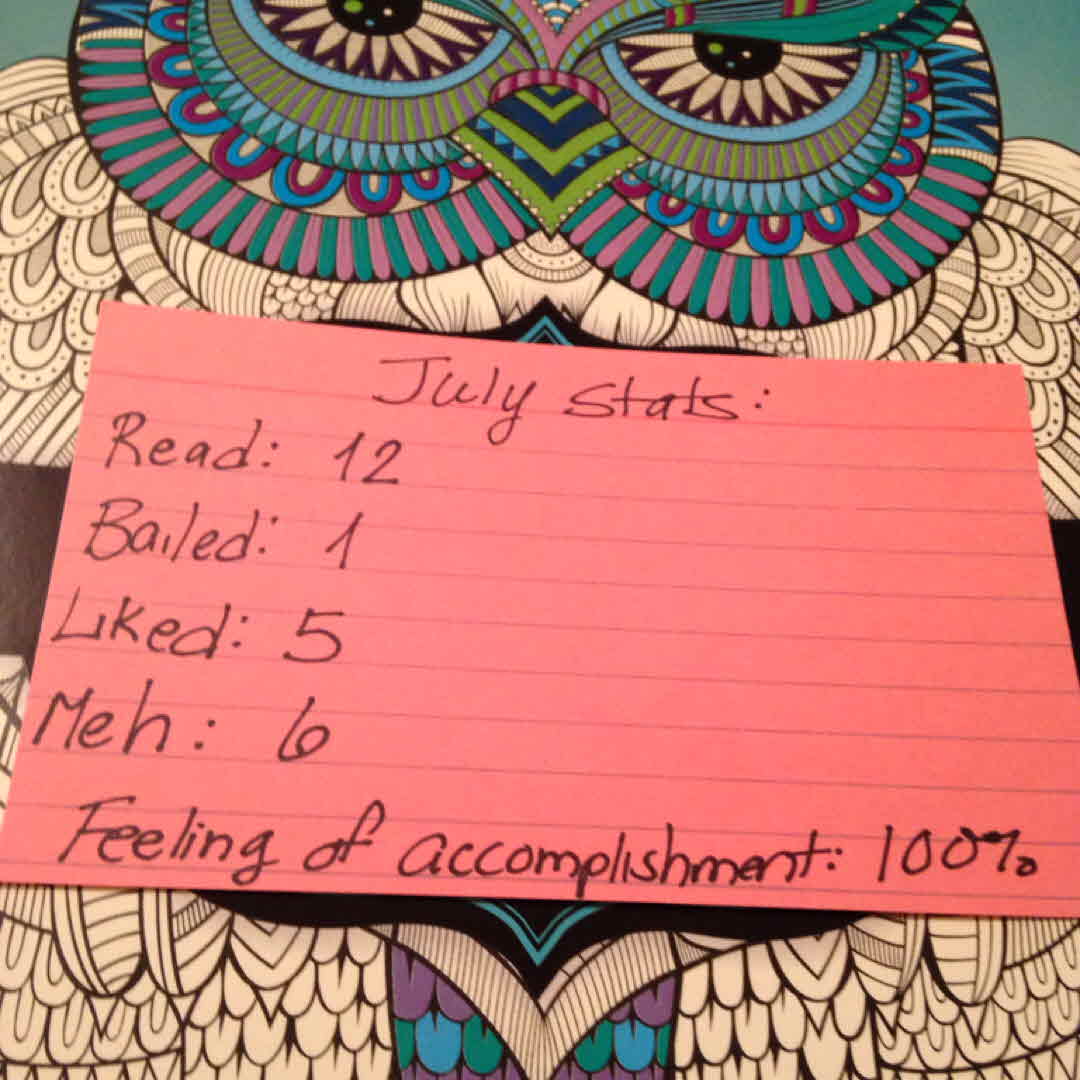 July stats:
Read: 12
Bailed: 1
Liked: 5
Meh: 6
Feeling of accomplishment: 100%